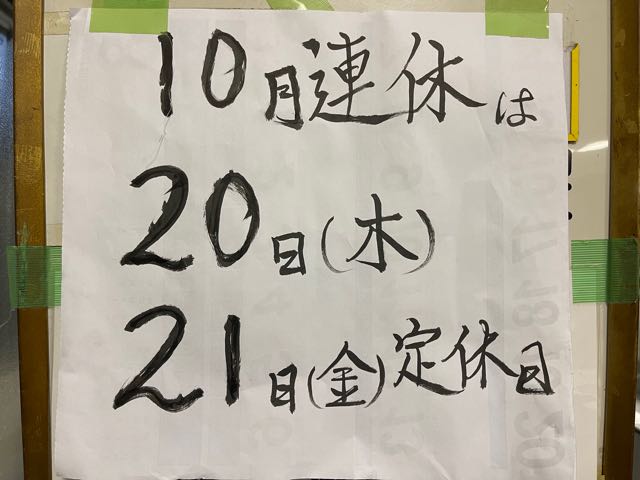 10月連休は
20日(木)
21日(金)定休日